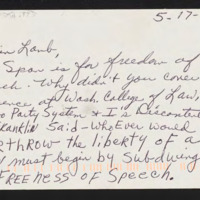 5-17-
Lamb,
Span is for freedom of
ch. Why didn't you cover
ence at Wash. College of Law,
o Party System & I's Discontent
Franklin Said - Who Ever would
erthrow the liberty of a
must begin by Subduing
FREENESS of SPeech.